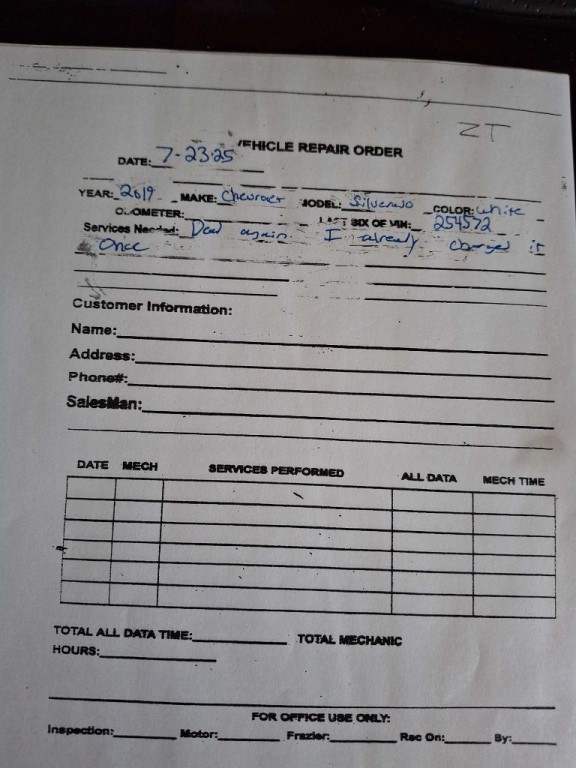 ZT
VEHICLE REPAIR ORDER
DATE: 7-23-25
YEAR: 2019 MAKE: Chevrolet MODEL: Silverado COLOR: White
ODOMETER: LAST SIX OF VIN: 254572
Services Needed: Dead again I already charged it
Once
Customer Information:
Name:
Address:
Phone#:
SalesMan:
DATE MECH SERVICES PERFORMED ALL DATA MECH TIME
TOTAL ALL DATA TIME: TOTAL MECHANIC
HOURS:
FOR OFFICE USE ONLY:
Inspection: Motor: Frazier: Rec On: By: